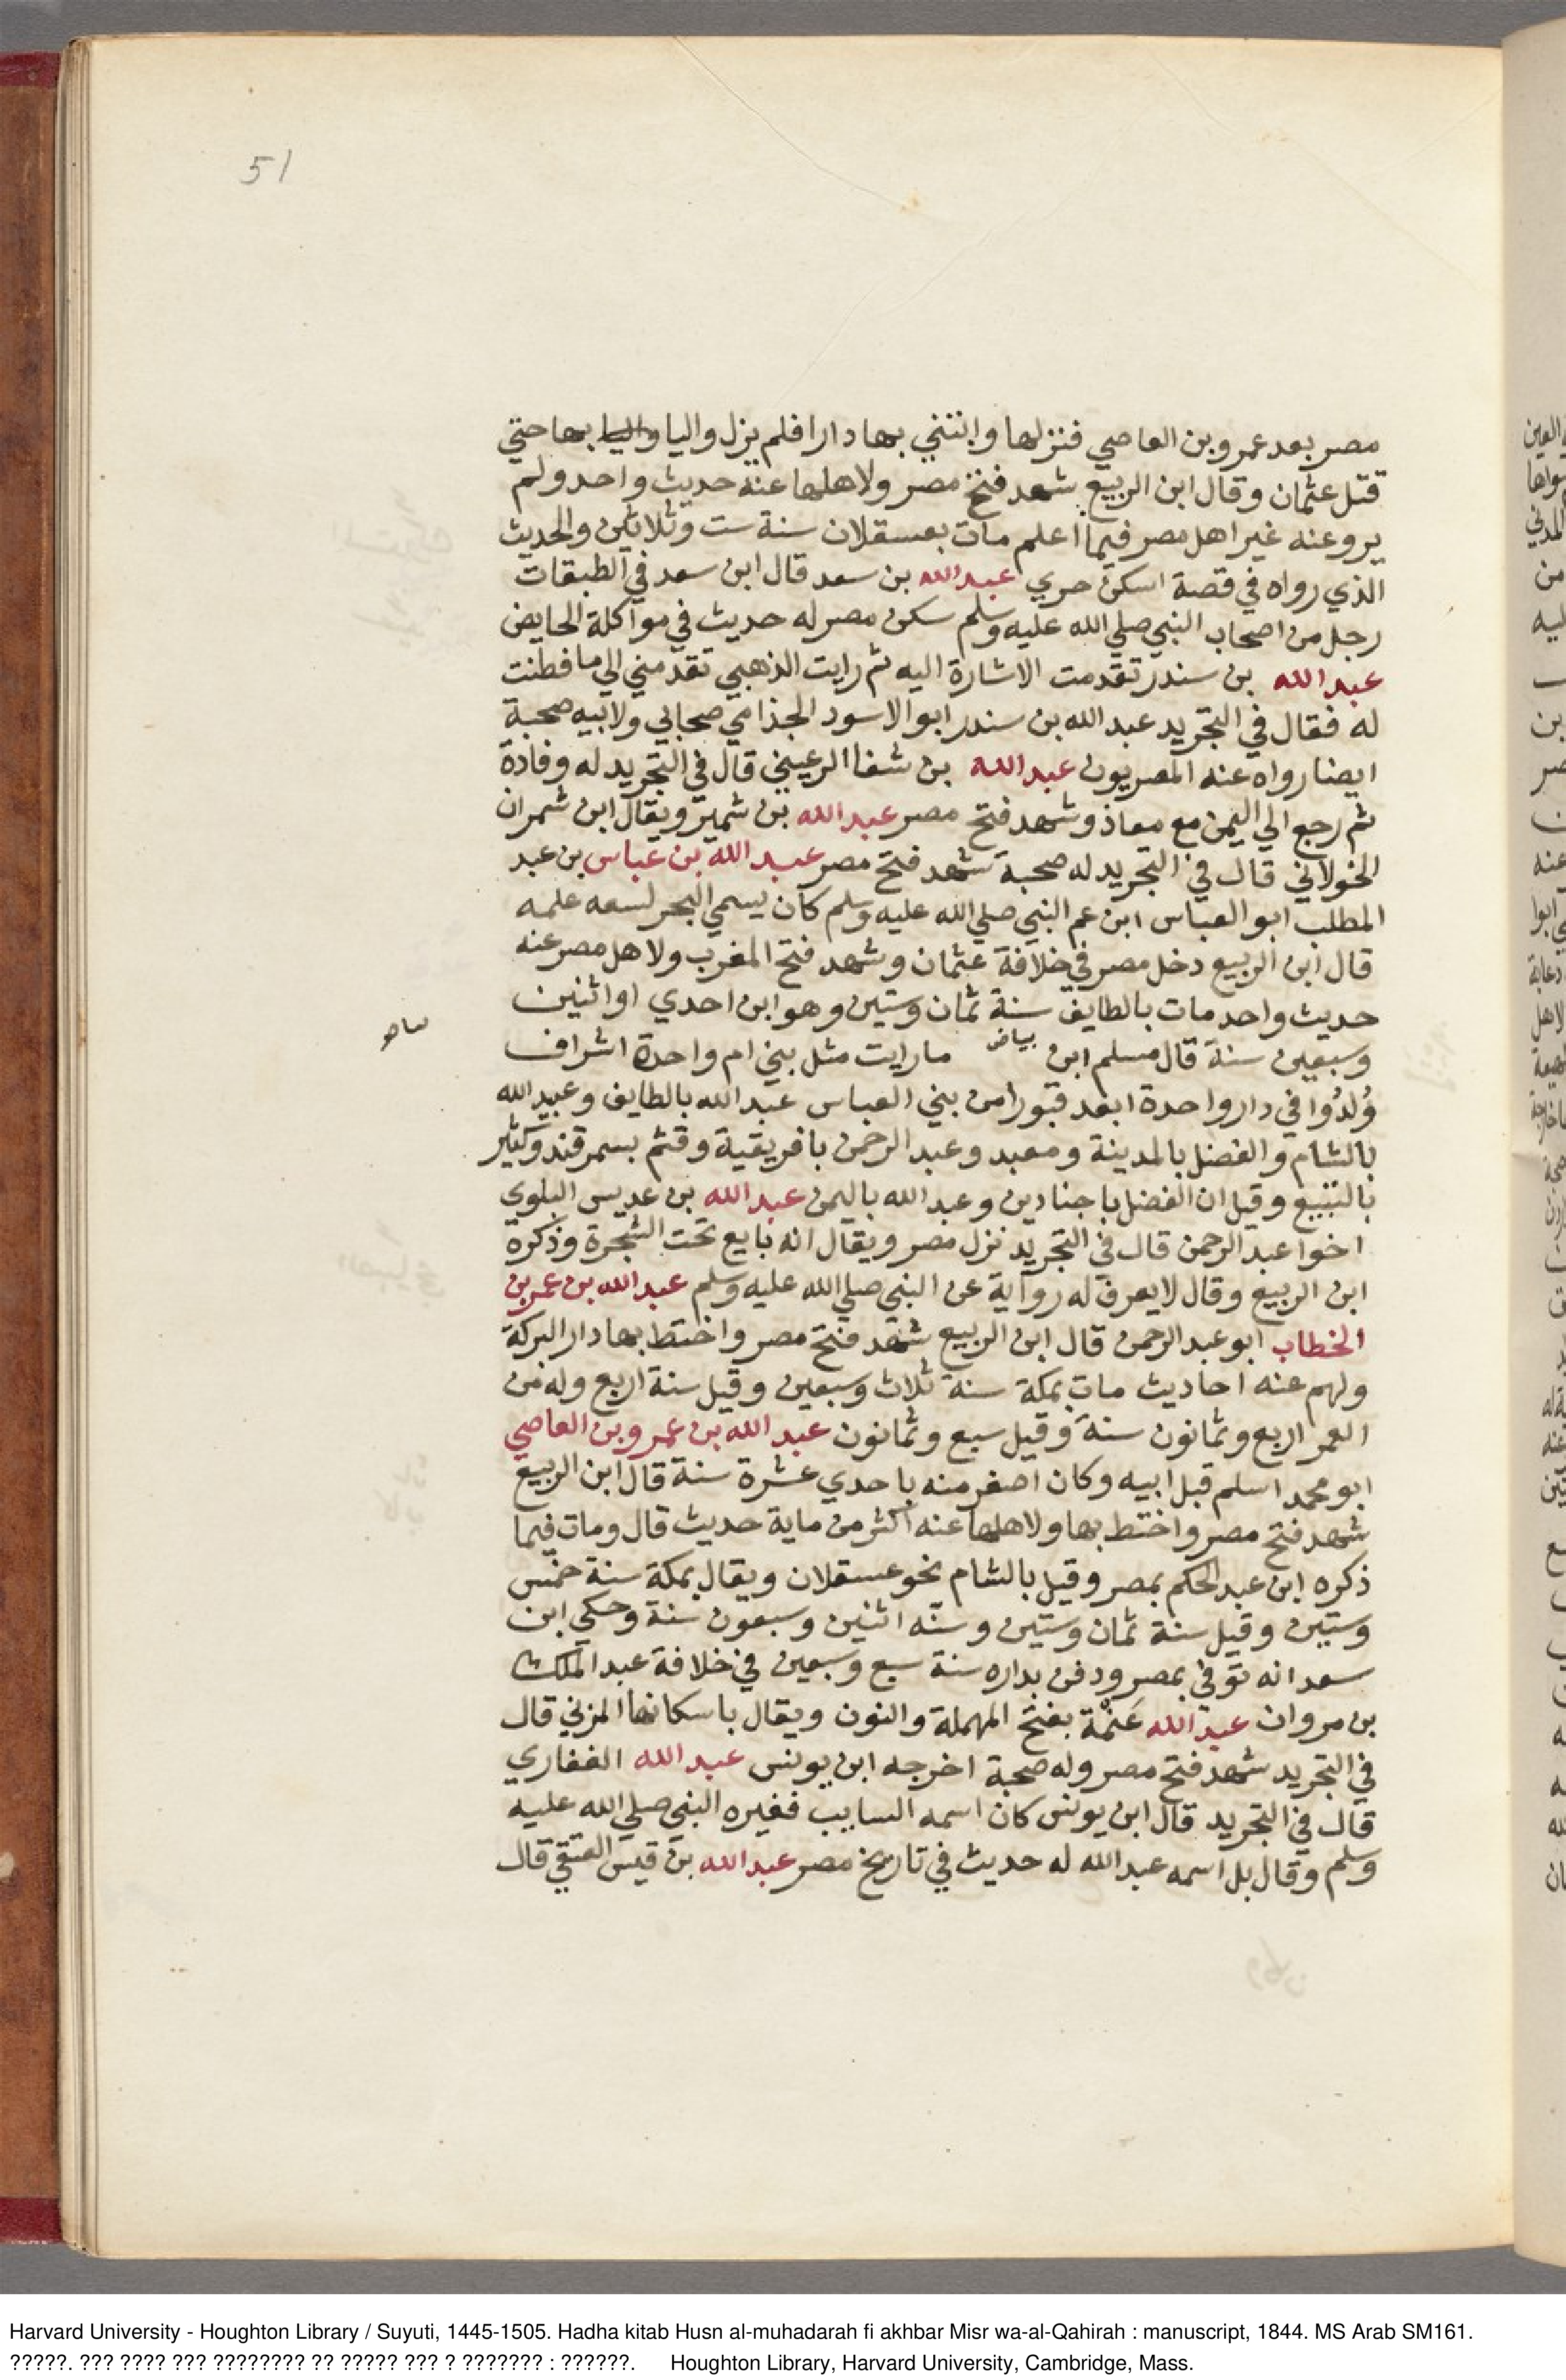 51
مصر بعد عمرو بن العاصي فنزلها وابتني بها دارا فلم يزل واليا واليا بها حتي
قتل عثمان وقال ابن الربيع شهد فتح مصر ولاهلها عنه حديث واحد ولم
يروعنه غير اهل مصر فيما اعلم مات بعسقلان سنة ست وثلاثين والحديث
الذي رواه في قصة اسكن حري عبد الله بن سعد قال ابن سعد في الطبقات
رجل من اصحاب النبي صلي الله عليه وسلم سكن مصر له حديث في مواكلة الحايض
عبد الله بن سندر تقدمت الاشارة اليه ثم رايت الذهبي تقدمني الي ما فطنت
له فقال في التجريد عبد الله بن سندر ابو الاسود الجذامي صحابي ولابيه صحبة
ايضا رواه عنه المصريون عبد الله بن شفا الرعيني قال في التجريد له وفادة
ثم رجع الي اليمن مع معاذ وشهد فتح مصر عبد الله بن شمير ويقال ابن شمران
الخولاني قال في التجريد له صحبة شهد فتح مصر عبد الله بن عباس بن عبد
المطلب ابو العباس ابن عم النبي صلي الله عليه وسلم كان يسمي البحر لسعه علمه
قال ابن الربيع دخل مصر في خلافة عثمان وشهد فتح المغرب ولاهل مصر عنه
حديث واحد مات بالطايف سنة ثمان وستين وهو ابن احدي او اثنين
وسبعين سنة قال مسلم ابن بياض ما رايت مثل بني ام واحدة اشراف
وُلدُوا في دار واحدة ابعد قبورا من بني العباس عبد الله بالطايف وعبيد الله
بالشام والفضل بالمدينة ومعبد وعبد الرحمن بافريقية وقثم بسمرقند وكثير
بالينبيع وقيل ان الفضل باجنادين وعبد الله باليمن عبد الله بن عديس البلوي
اخوا عبد الرحمن قال في التجريد نزل مصر ويقال انه بايع تحت الشجرة وذكرة
ابن الربيع وقال لا يعرف له رواية عن النبي صلي الله عليه وسلم عبد الله بن عمر بن
الخطاب ابو عبد الرحمن قال ابن الربيع شهد فتح مصر واختط بها دار البركة
ولهم عنه احاديث مات بمكة سنة ثلاث وسبعين وقيل سنة اربع وله من
العمر اربع وثمانون سنة وقيل سبع وثمانون عبد الله بن عمرو بن العاصي
ابو محمد اسلم قبل ابيه وكان اصغر منه باحدي عشرة سنة قال ابن الربيع
شهد فتح مصر واختط بها ولاهلها عنه اكثر من ماية حديث قال ومات فيما
ذكره ابن عبد الحكم بمصر وقيل بالشام نحو عسقلان ويقال بمكة سنة خمس
وستين وقيل سنة ثمان وستين وسنه اثنين وسبعون سنة وحكي ابن
سعد انه توفي بمصر ودفن بداره سنة سبع وسبعين في خلافة عبد الملك
بن مروان عبد الله عَنَمْة بفتح المهملة والنون ويقال باسكانها المزني قال
في التجريد شهد فتح مصر وله صحبة اخرجه ابن يونس عبد الله الغفاري
قال في التجريد قال ابن يونس كان اسمه السايب فغيره النبي صلي الله عليه
وسلم وقال بل اسمه عبد الله له حديث في تاريخ مصر عبد الله بن قيس العتقي قال
Harvard University - Houghton Library / Suyuti, 1445-1505. Hadha kitab Husn al-muhadarah fi akhbar Misr wa-al-Qahirah : manuscript, 1844. MS Arab SM161.
?????. ??? ???? ??? ???????? ?? ????? ??? ? ??????? : ??????. Houghton Library, Harvard University, Cambridge, Mass.